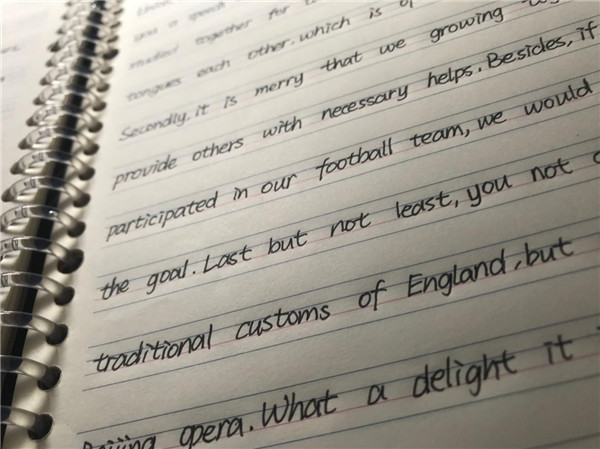 you a speech for
studied together for
tongues each other. which is
Secondly. it is merry that we growing
provide others with necessary helps. Besides, if
participated in our football team, we would
the goal. Last but not least, you not
traditional customs of England, but
opera. What a delight it